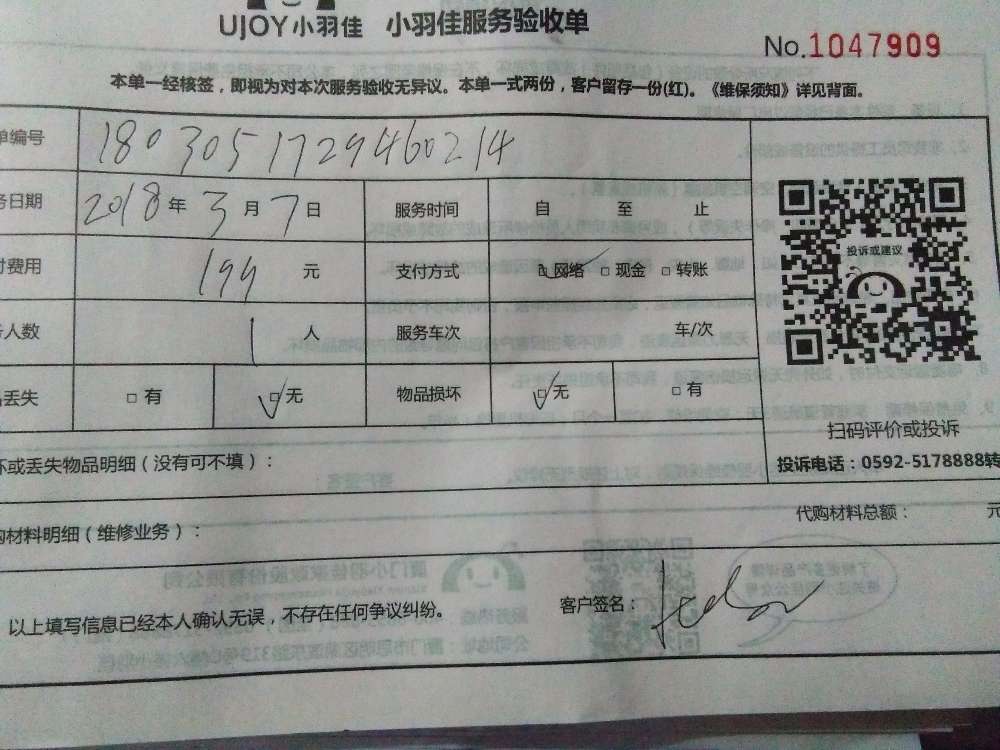 UJOY小羽佳 小羽佳服务验收单
No.1047909
本单一经核签，即视为对本次服务验收无异议。本单一式两份，客户留存一份(红)。《维保须知》详见背面。
单编号 1803051729460214
务日期 2018年3月7日 服务时间 自 至 止
付费用 199元 支付方式 □网络 □现金 □转账
务人数 1人 服务车次 车/次
丢失 □有 □无 物品损坏 □无 □有
投诉或建议
扫码评价或投诉
投诉电话：0592-5178888转
坏或丢失物品明细（没有可不填）：
代购材料总额： 元
购材料明细（维修业务）：
以上填写信息已经本人确认无误，不存在任何争议纠纷。 客户签名：